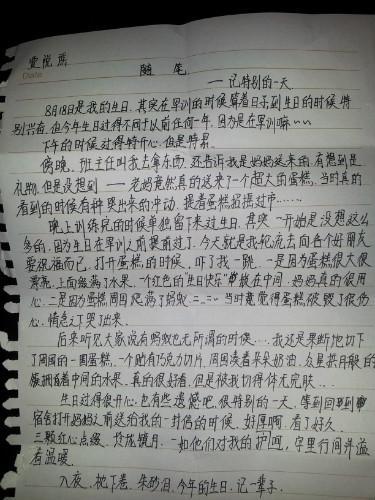 随笔
Date
——记特别的一天
8月18日是我的生日,其实在军训的时候算着日子到生日的时候特
别兴奋,但今年生日过得不同于以前任何一年,因为是在军训嘛~~
下午的时候过得特开心,但是特累。
傍晚,班主任叫我去拿东西,还告诉我是妈妈送来的,有想到是
礼物,但是没想到——老妈竟然真的送来了一个超大的蛋糕,当时真的
看到的时候有种哭出来的冲动,提着蛋糕招摇过市……
晚上训练完的时候单独留下来过生日,其实一开始是没想这么
多的,因为生日在军训之前提前过了,今天就是轮流去向各个好朋友
要祝福而已,打开蛋糕的时候,吓了一跳,一是因为蛋糕很大很
漂亮,上面缀满了水果,一个红色的"生日快乐"带散在中间,妈妈真的很用
心,二是因为蛋糕周围爬满了蚂蚁=.=当时觉得蛋糕破毁了很伤
心,情急之下哭了出来。
后来听见大家说有蚂蚁也无所谓的时候…我还是果断地切下
了周围的一圈蛋糕,一个贴有巧克力切片,周围凑着朵朵奶油,众星拱月般的
簇拥着中间的水果,真的很好看,但是被我切得体无完肤…
生日过得很开心,也有些遗憾吧,很特别的一天,等到回到
宿舍打开妈妈之前送给我的一封信的时候,好厚啊,看了好久
三颗红心点缀,
一如他们对我的呵护,字里行间洋溢
着温暖。
入夜,枕下卷,朱砂泪,今年的生日,记一辈子。